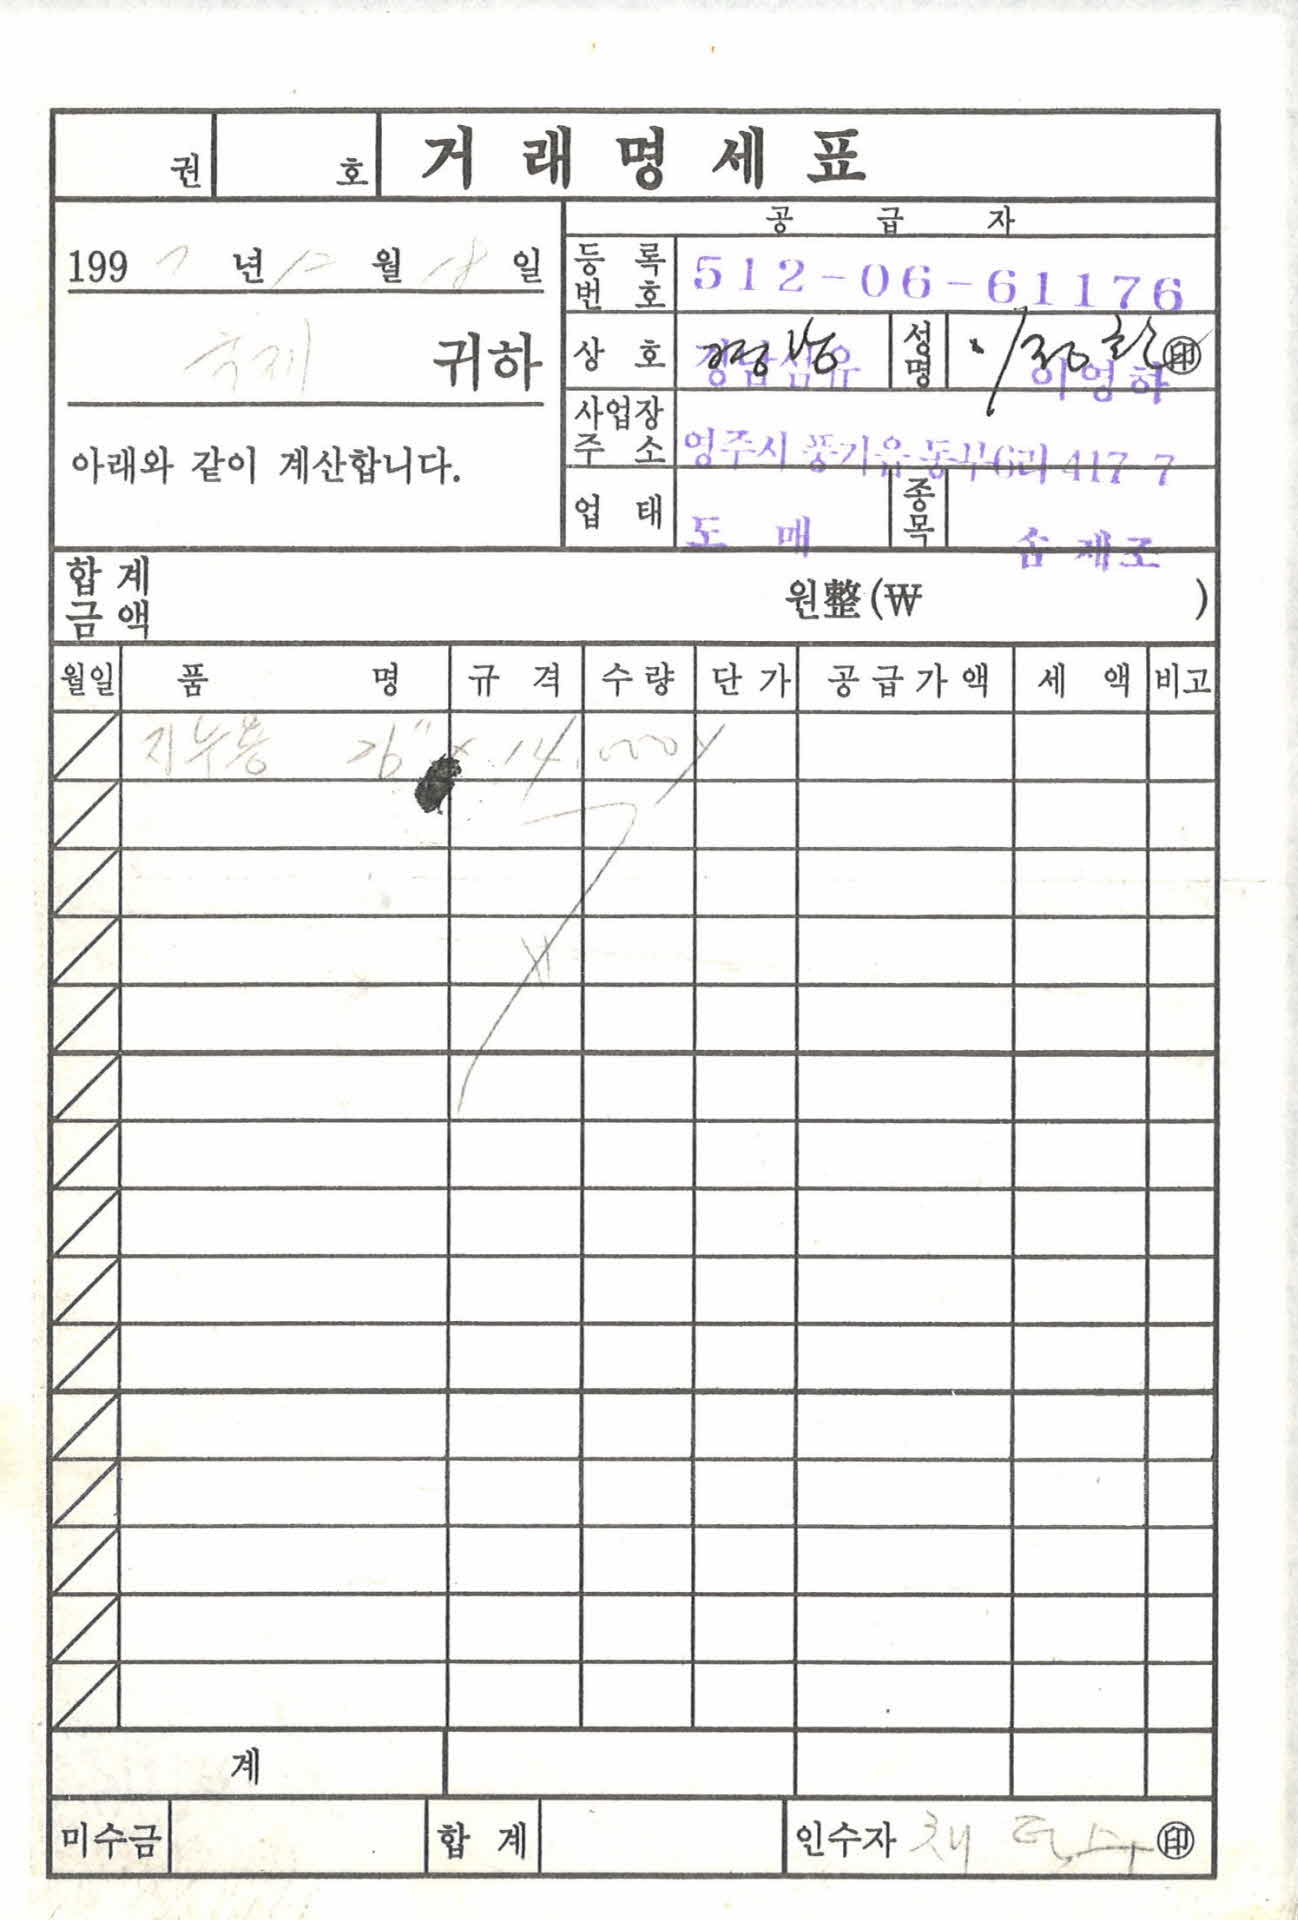 권 호 거래명세표
공급자
1997년 12월 18일
국제 귀하
아래와 같이 계산합니다.
등록번호 512-06-61176
상호 경남섬유 성명 이영하 印
사업장주소 영주시 풍기읍 동부6리 417-7
업태 도매 종목 솜제조
합계금액 원整(₩ )
월일 품명 규격 수량 단가 공급가액 세액 비고
지누몽 26" × 14,000y
계
미수금 합계 인수자 채 印